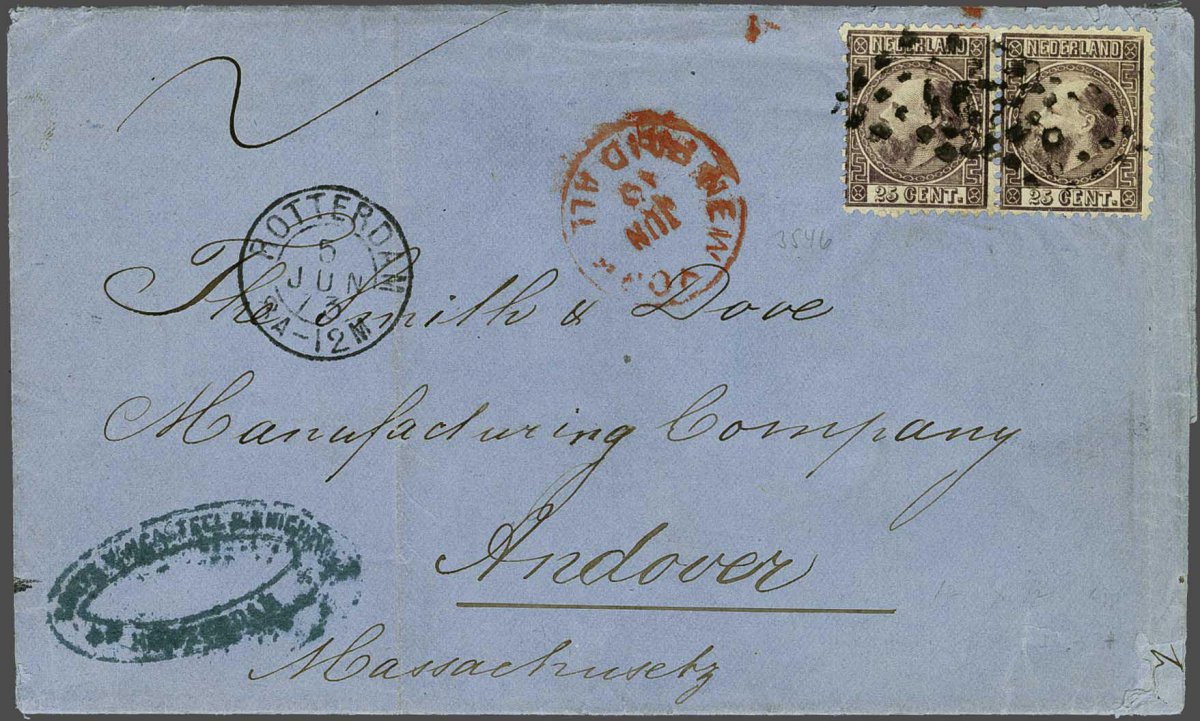 NEDERLAND NEDERLAND
25 CENT. 25 CENT.
NEW YORK
PAID ALL
JUN
3546
ROTTERDAM
5
JUN
73
12M
The Smith & Dove
Manufacturing Company
Andover
Massachusetz